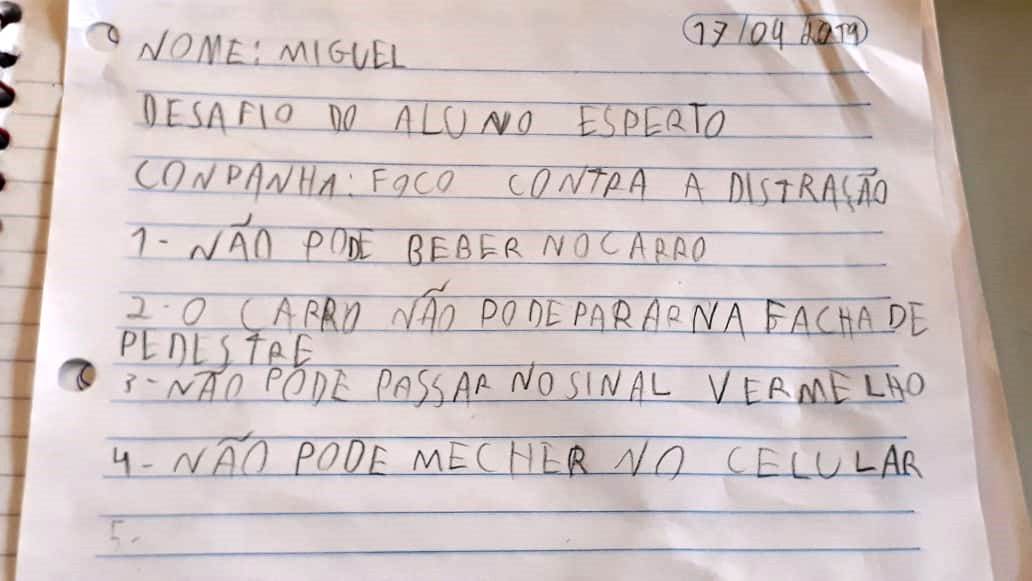 17/04/2019
NOME: MIGUEL
DESAFIO DO ALUNO ESPERTO
CONPANHA: FOCO CONTRA A DISTRAÇÃO
1- NÃO PODE BEBER NO CARRO
2-O CARRO NÃO PODE PARAR NA FACHA DE
PEDESTRE
3-NÃO PODE PASSAR NO SINAL VERMELHO
4-NÃO PODE MECHER NO CELULAR
5-